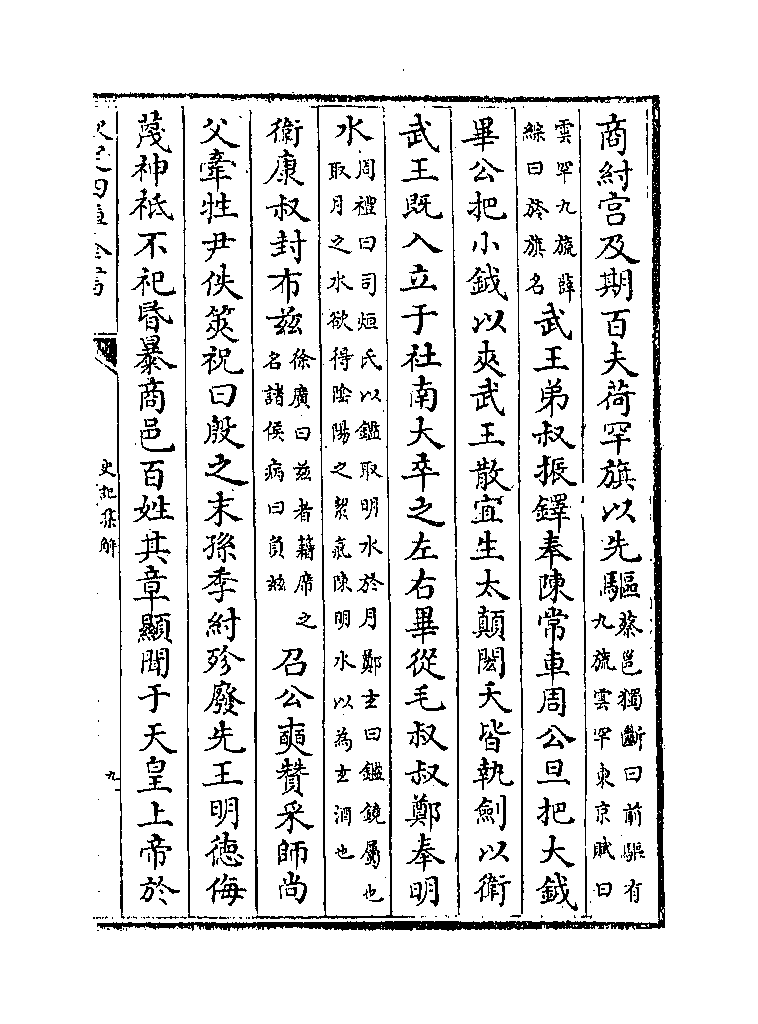 商紂宫及期百夫荷罕旗以先驅蔡邕獨斷曰前驅有九旒雲罕東京賦曰
雲罕九旒薛綜曰旒旗名武王弟叔振鐸奉陳常車周公旦把大鉞
畢公把小鉞以夾武王散宜生太顛閎夭皆執劍以衛
武王既入立于社南大卒之左右畢從毛叔叔鄭奉明
水周禮曰司烜氏以鑑取明水於月鄭玄曰鑑鏡屬也取月之水欲得陰陽之㓗氣陳明水以為玄酒也
衛康叔封布兹徐廣曰兹者藉席之名諸侯病曰負兹召公奭贊采師尚
父牽牲尹佚筴祝曰殷之末孫季紂殄廢先王明徳侮
蔑神祗不祀昏暴商邑百姓其章顯聞于天皇上帝於
欽定四庫全書
史記集解
九